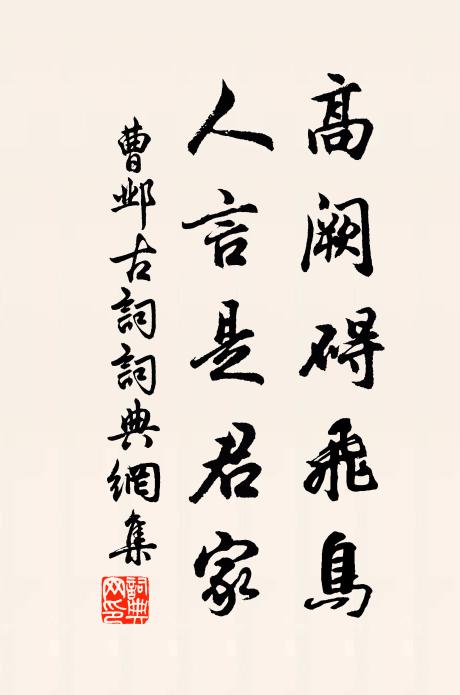 高阙碍飛鳥
人言是君家
曹邺古詞詞典網集
詞典網印